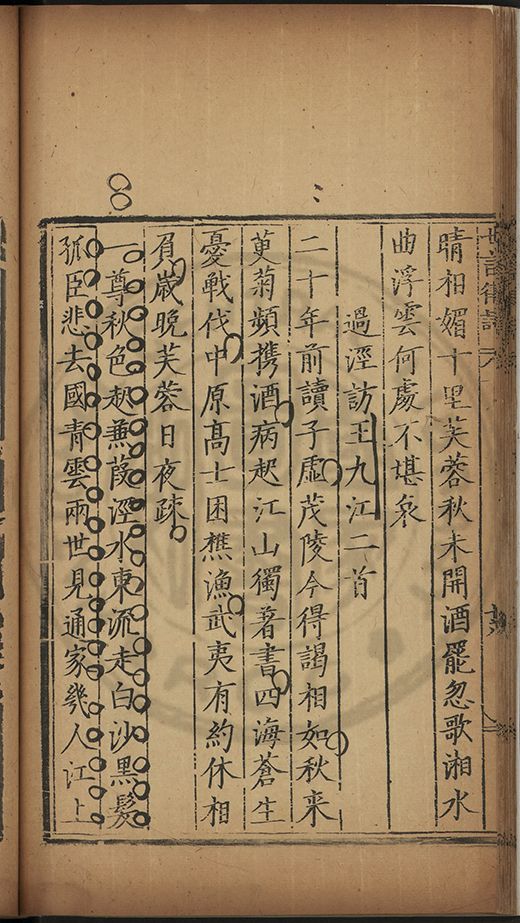 晴相媚十里芙蓉秋未開酒罷忽歌湘水
曲浮雲何處不堪哀
過涇訪王九江二首
二十年前讀子虛茂陵今得謁相如秋来
萸菊頻携酒病起江山獨著書四海蒼生
憂戰伐中原髙士困樵漁武夷有約休相
負歲晚芙蓉日夜疎
一尊秋色起蒹葭涇水東流走白沙黒髮
孤臣悲去國青雲兩世見通家㡬人江上